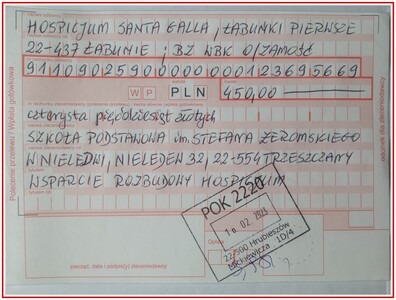 HOSPICJUM SANTA GALLA, ŁABUŃKI PIERWSZE
22-437 ŁABUNIE; BZ WBK O/ZAMOŚĆ
91109025900000000123695669
WP PLN 450,00
czterysta pięćdziesiąt złotych
SZKOŁA PODSTAWOWA im. STEFANA ŻEROMSKIEGO
W NIELEDWI, NIELEDEW 32, 22-554 TRZESZCZANY
WSPARCIE ROZBUDOWY HOSPICJUM
POK 2220
02
22-500 Hrubieszów
Mickiewicza 1D/4
Opłata
pieczęć, data i podpis(y) zleceniodawcy
Polecenie przelewu / Wpłata gotówkowa
odcinek dla zleceniodawcy